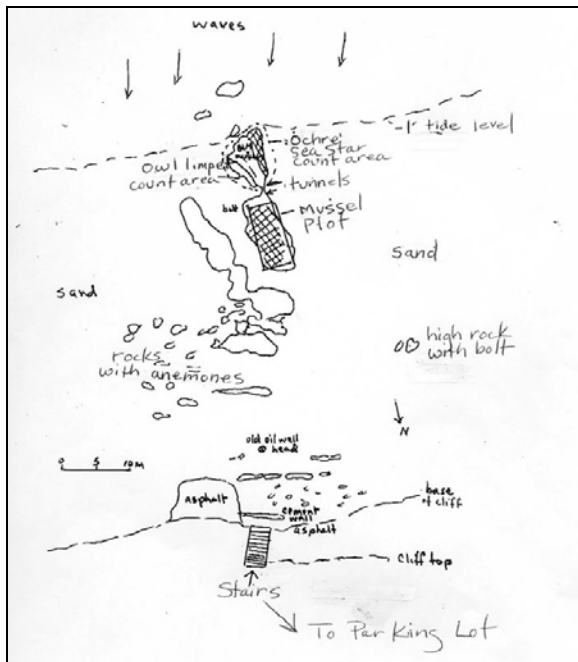 waves
-1' tide level
Ochre
Sea Star
count area
Owl limpet
count area
tunnels
bolt
Mussel
Plot
sand
sand
high rock
with bolt
rocks
with anemones
N
old oil well
@ head
0 5 10M
asphalt
cement
wall
asphalt
base
of cliff
cliff top
Stairs
To Parking Lot